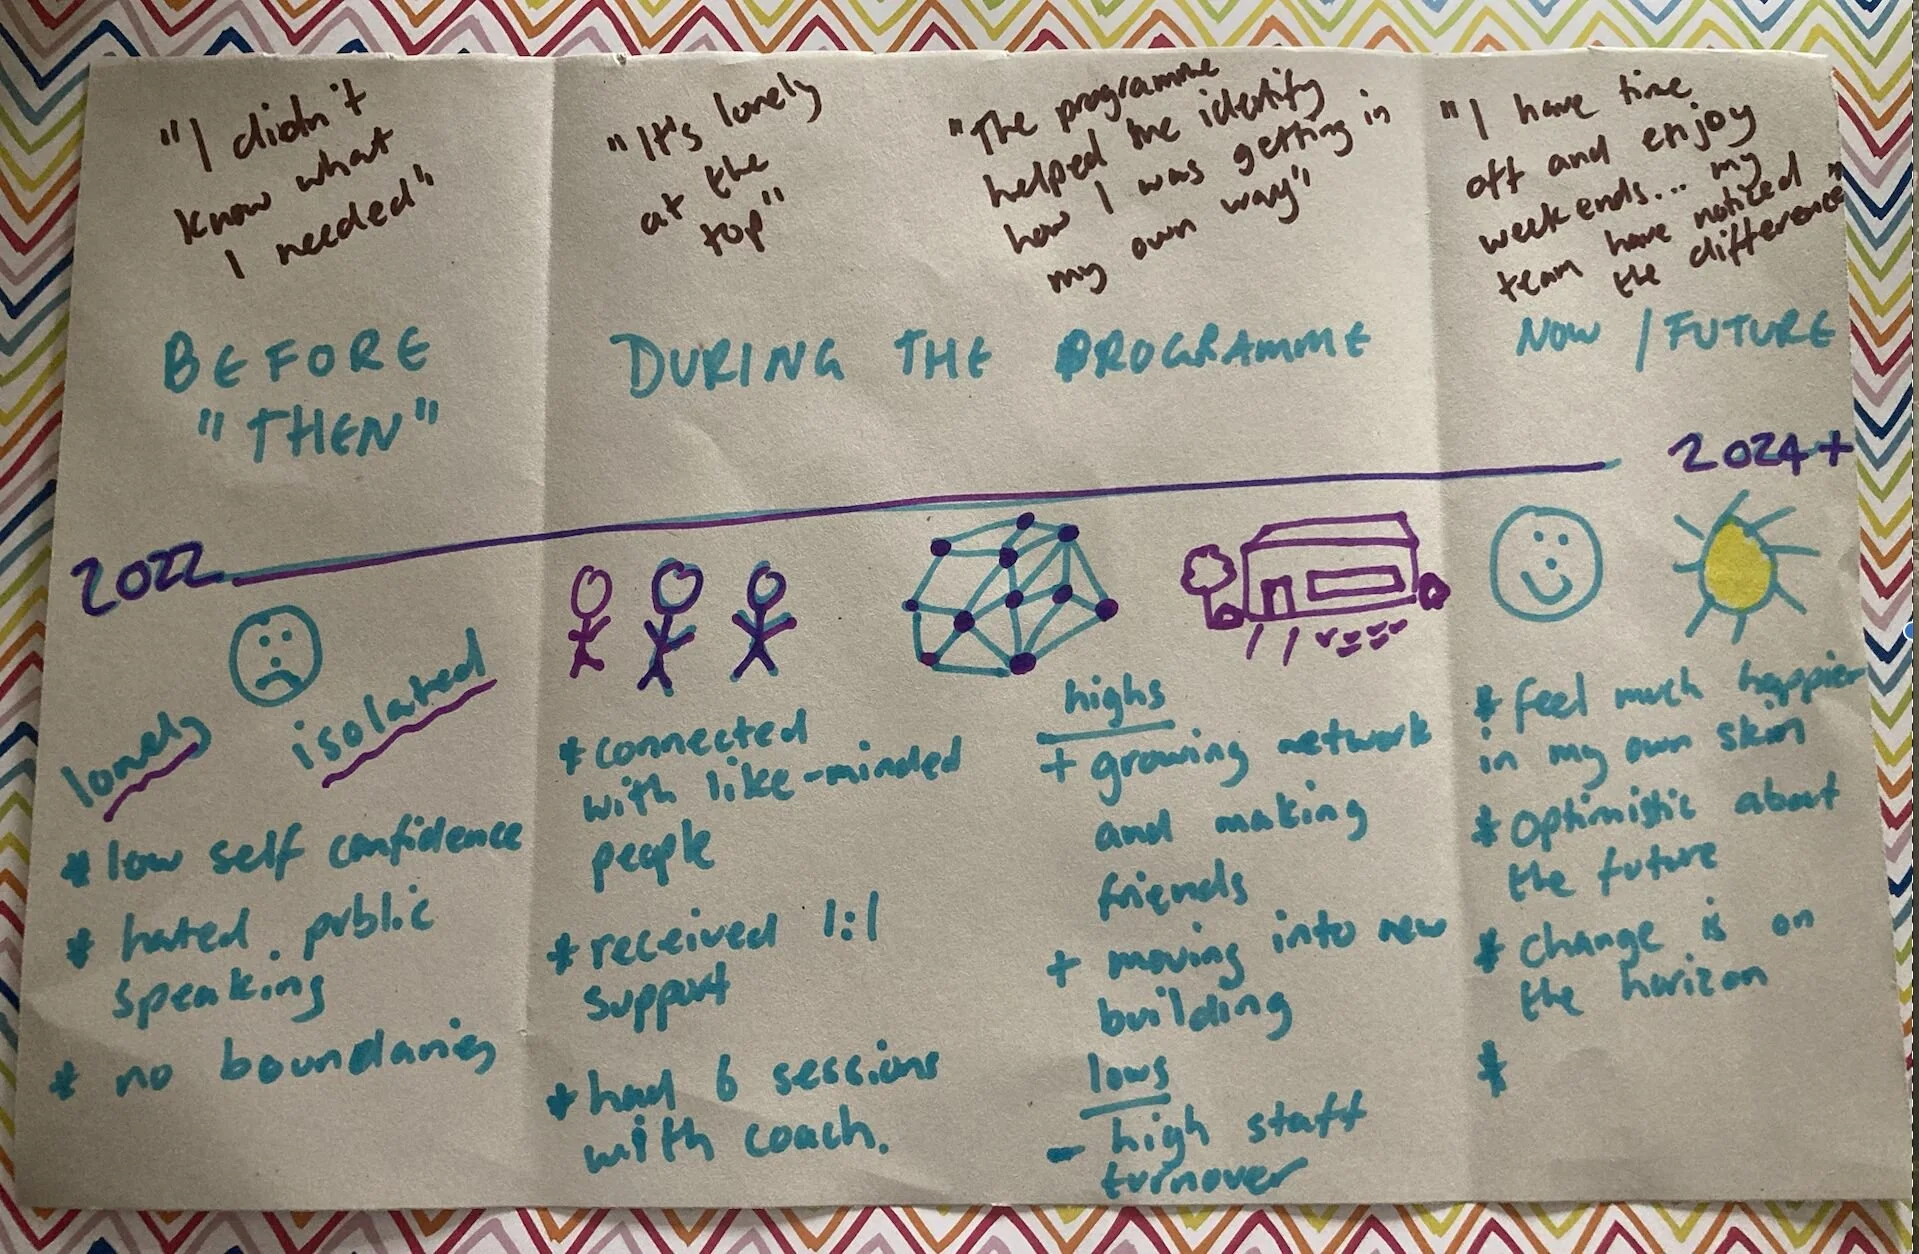 "I didn't
know what
I needed"
BEFORE
"THEN"
"It's lonely
at the
top"
"The programme
helped me identify
how I was getting in
my own way"
DURING THE PROGRAMME
"I have time
off and enjoy
weekends... my
team have noticed
the difference"
NOW / FUTURE
2022
2024+
lonely
isolated
* low self confidence
* hated public
speaking
* no boundaries
* connected
with like-minded
people
* received 1:1
support
* had 6 sessions
with coach.
highs
+ growing network
and making
friends
+ moving into new
building
lows
- high staff
turnover
* feel much happier
in my own skin
* optimistic about
the future
* change is on
the horizon
*